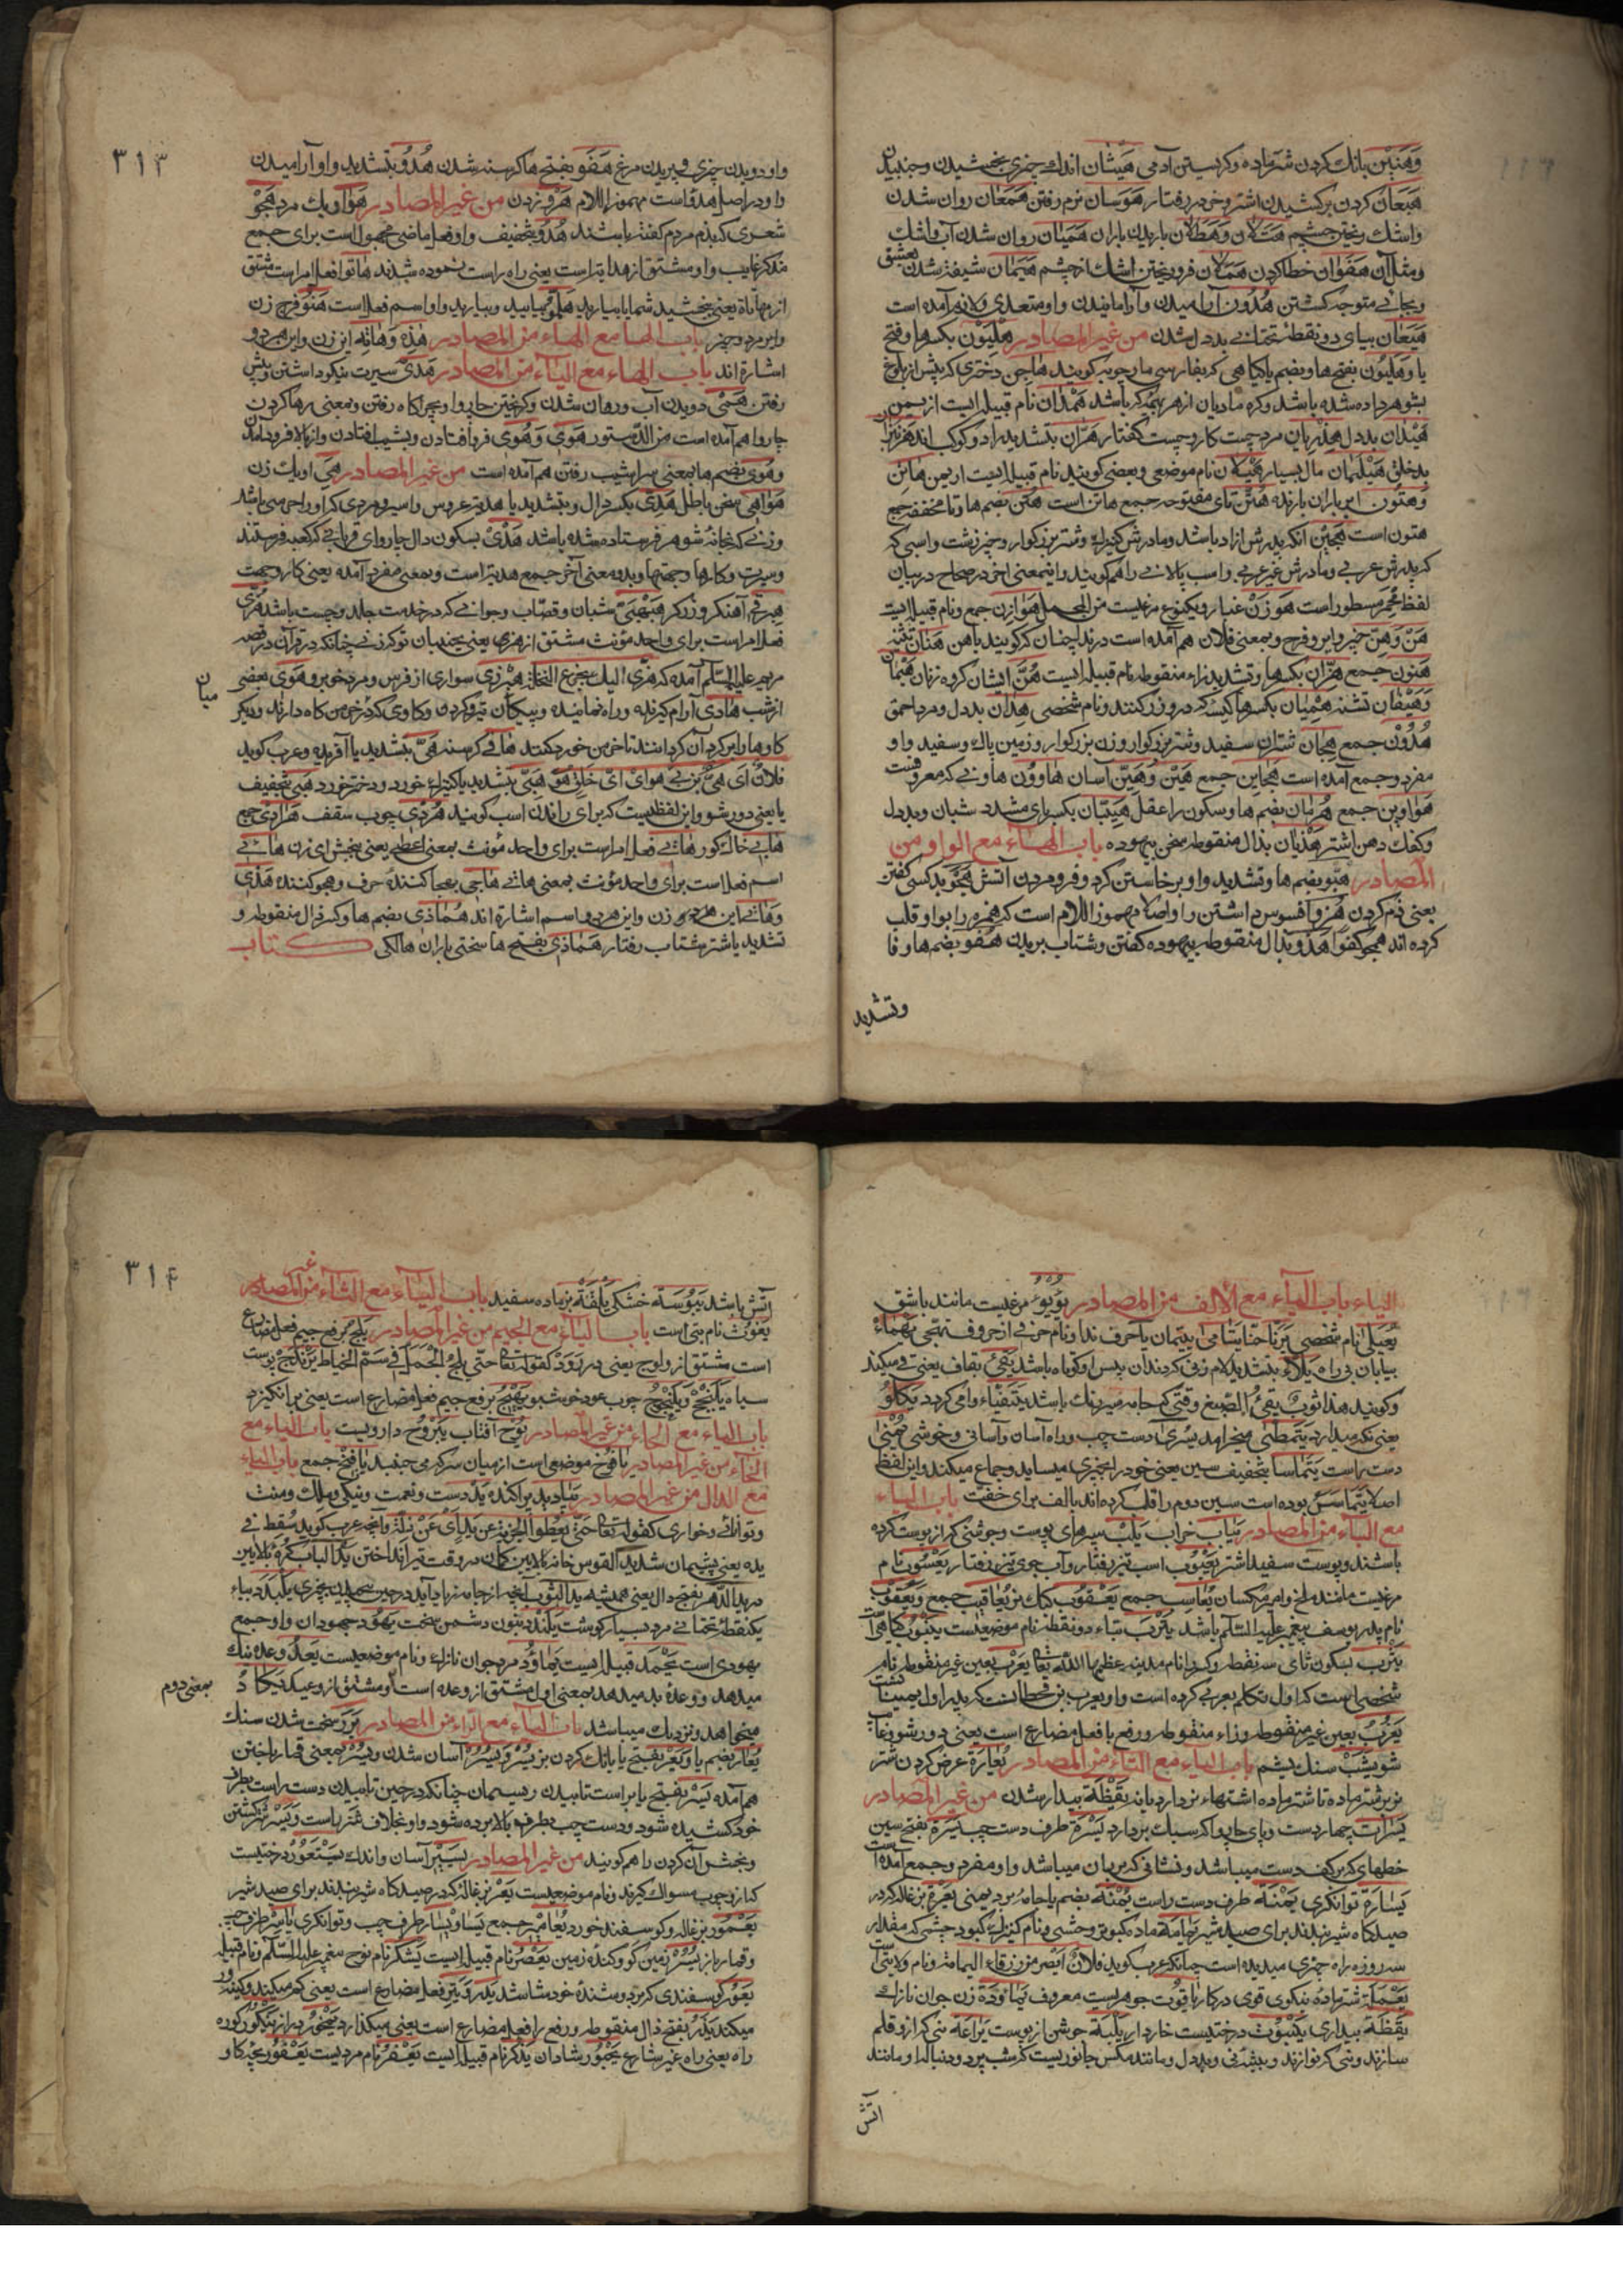 وَهَنِیْن بانك كردن شتر ماده و كریستن آدمی هَیَشَان اندك چیزی بخشیدن و جنبیدن
هَبَعَان كردن بركشیدن اشتر و خر در رفتار هَوَسَان نرم رفتن هَمَعَان روان شدن
واشك ریختن چشم هَتَلَان وَهَطَلَان باریدن باران هَمَیَان روان شدن آب واشك
ومثل آن هَفَوَان خطا كردن هَمَلَان فرو ریختن اشك از چشم هَیَمَان شیفته شدن بعشق
وبجائی متوجه كشتن هُدُون آرامیدن وآرامانیدن واو متعدی ولازم آمده است
هَیَعَان بیای دو نقطهٔ تحتانی بددل شدن من غیر المصادر هِلْیَوْن بكسر ها وفتح
یا وَهَلْیُون بفتح ها وبضم یا كیاهی كه بفارسی مارچوبه كویند هَاجِن دختری كه پیش از بلوغ
بشوهر داده شده باشد وكره مادیان از هر بهتر كه باشد هَمْدَان نام قبیله ایست از یمن
هَیْدَان بددل هِذْرِیَان مرد چست كار و چست كفتار هَرَّاران بتشدید را دو كوكب اند
بدخلق هَیْلَمَان مال بسیار هَیْلَان نام موضعی وبعضی كویند نام قبیله ایست از یمن هَاتِن
وَهَتُون ابر باران بارنده هُتَّن تای مفتوحه جمع هاتن است هُتُن بضم ها وتا مخفف جمع
هتون است هَجِیْن آنكه پدرش آزاد باشد ومادرش كنیزك وشتر بزركوار وچیز زشت واسبی كه
كه پدرش عربی ومادرش غیر عربی واسب پالانی را هم كویند واینمعنی آخر در صحاح در بیان
لفظ مُقْرِف مسطور است هَوْزَن غبار ویكنوع مرغیست من المجمل هَوَازِن جمع ونام قبیله ایست
هَنْ وَهَنّ چیز واین وفرج وبمعنی فلان هم آمده است در ندا چنان كه كویند یا هن هَنَان تثنیه
هَنُون جمع هِزَّان بكسر ها وتشدید زاء منقوطه نام قبیله ایست هُنَّ ایشان كروه زنان
وَهَیْفَان تشنه هِمْیَان بكسر ها كیسه كه درو زر كنند ونام شخصی هِدَان بددل ومرد احمق
هُدُوْن جمع هِجَان شتران سفید وشتر بزركوار وزن بزركوار وزمین پاك وسفید واو
مفرد وجمع آمده است هَجَایِن جمع هَیْن وَهَیِّن آسان هَاوُوْن هاونی كه معروفست
هَوَاوِیْن جمع هُرْمَان بضم ها وسكون را عقل هَیِّبَان بكسر یای مشدد شبان وبددل
وكفك دهن اشتر هَذْیَان بذال منقوطه سخن بیهوده باب الهاء مع الواو من
المصادر هُبُوّ بضم ها وتشدید واو برخاستن كرد وفرو مردن آتش هَجْو بد كسی كفتن
یعنی ذم كردن هُزُو افسوس داشتن را واصلا مهموز اللام است كه همزه را بواو قلب
كرده اند همچو كفوًا هَذْو بذال منقوطه بیهوده كفتن وشتاب بریدن هُفُوّ بضم ها وفا
وتشدید
۳۱۳
واو دویدن چیزی وپریدن مرغ هَفْو بفتح ها كرسنه شدن هُدُوّ بتشدید واو آرامیدن
واو در اصل هدؤا است مهموز اللام هَرْو زدن من غیر المصادر هَوَ او یك مرد هَجْو
شعری كه بذم مردم كفته باشند هُدُوْ بتخفیف واو فعل ماضی مجهول است برای جمع
مذكر غایب واو مشتق از هدایة است یعنی راه راست نموده شدند هَاتُو افعل امر است مشتق
از مهاتاة یعنی ببخشید شمایا بیارید هَلُمُّو بیایید وبیارید واو اسم فعل است هَنُو فرج زن
واین مرد وچیز باب الهاء مع الهاء من المصادر هٰذِهِ وَهَاتِهِ این زن واین هر دو
اشاره اند باب الهاء مع الیاء من المصادر هَدْی سیرت نیكو داشتن وپیش
رفتن هَمْی دویدن آب وروان شدن وكریختن چاروا وبچراكاه رفتن وبمعنی رها كردن
چاروا هم آمده است من الدستور هَوِیّ وَهُوِیّ فرو افتادن وبشیب افتادن واز بالا فرو آمدن
وهُوِیّ بضم ها بمعنی سرا شیب رفتن هم آمده است من غیر المصادر هِیَ او یك زن
هَوَاهِی سخن باطل هَدِیّ بكسر دال وبتشدید یا هدیه وعروس واسیر ومردی كه او را حرمتی باشد
وزنی كه بخانهٔ شوهر فرستاده شده باشد هَدْی بسكون دال چاروای قربانی كه بكعبه فرستند
وسیرت وكارها وجهتها وبدو معنی آخر جمع هدیة است وبمعنی مفرد آمده یعنی كار وجهت
هِبْرِقِی آهنكر وزركر هَبْهَبِیّ شبان وقصّاب وجوانی كه در خدمت جلد وچست باشد هُزِّی
فعل امر است برای واحد مؤنث مشتق از هزی یعنی بجنبان تو كه زنی چنانكه در قرآن در قصه
مریم علیها السلم آمده كه هزی الیك بجذع النخلة هِبْرِزِی سواری از فرس ومرد خوبرو هَوِیّ بعضی
میان
از شب هَادِی آرام كیرنده وراه نماینده وپیكان تیر وكردن وكاوی كه در خرمن كاه دارند ودیكر
كاوها را بر كرد آن كردانند تا خرمن خورد كنند هَاقِی كرسنه هَیّ بتشدید یا آفریده وعرب كوید
فلان ای هَیّ بْنُ بَیّ هو ای ایّ خلق هو هَبَیّ بتشدید یا كنیزك خورد ودختر خورد هَبِی بتخفیف
یا یعنی دور شو واین لفظیست كه برای راندن اسب كویند هُرْدِی چوب سقف هَرَادِی جمع
هَابِی خاك كور هَاتِی فعل امر است برای واحد مؤنث بمعنی اعطی یعنی ببخش ای زن هَائِی
اسم فعل است برای واحد مؤنث بمعنی هاتی هَاجِی بهجا كننده حرف وهجو كننده هٰذِی
وَهَاتِی این هر دو زن واین هر دو اسم اشاره اند هُمَاذِی بضم ها وكسر ذال منقوطه و
تشدید یا شتر شتاب رفتار هَمَاذِی بفتح ها سختی باران هالكی كتاب
الیاء باب الیاء مع الالف من المصادر یُؤْیُؤ مرغیست مانند باشق
یَعْیَلی نام شخصی یَرَنَّا حنا یَتَامَی یتیمان یا حرف ندا ونام حرفی از حروف تهجی یَهْمَاءُ
بیابان بی راه یَلَّاء بتشدید لام زنی كه دندان پیس او كوتاه باشد یَفِیُ بقاف یعنی قی میكند
وكویند هذا ثوب یقی الصبغ وقتی كه جامه سیر رنك باشد یَتَفَیَّاء وا می كردد یَكْلَؤُ
یعنی نكه میدارد یَتَمَطَّی میخرامد یُسْرَی دست چپ وراه آسان وآسانی وخوشی یُمْنَی
دست راست یَتَمَاسَّا بتخفیف سین یعنی خود را بچیزی میساید وجماع میكند واین لفظ
اصلا یَتَمَاسَسُ بوده است سین دوم را قلب كرده اند بالف برای خفّت باب الیاء
مع الباء من المصادر یَبَاب خراب یَلَب سپرهای پوست وجوشنی كه از پوست كرده
باشند وپوست سفید اشتر یَعْبُوب اسب تیز رفتار وآب جوی تیز رفتار یَعْسُوب نام
مرغیست مانند ملخ وامیر مكسان یَعَاسِیب جمع یَعْقُوب كبك نر یَعَاقِیب جمع وَیَعْقُوب
نام پدر یوسف پیغمبر علیه السلام باشد یَتْرَب بتاء دو نقطه نام موضعیست یَنْبُوت كیاهی
یَثْرِب بسكون ثای سه نقطه وكسر را نام مدینه عظمها الله تعالی یَعْرُب بعین غیر منقوطه نام
شخصی است كه اول تكلم بعربی كرده است واو یعرب بن قحطانست كه پدر اول یمنیانست
یَعْزُبُ بعین غیر منقوطه وزاء منقوطه ورفع با فعل مضارع است یعنی دور شود
یَشْب سنك یشم باب الیاء مع التاء من المصادر یُعَارَة عرض كردن شتر
نر بر شتر ماده تا شتر ماده اشتهاء نر دارد یا نه یَقْظَة بیدار شدن من غیر المصادر
یَسَرَات چهار دست وپای چاروا كه سبك بردارد یَسْرَة طرف دست چپ یَسَرَة بفتح سین
خطهای كه بر كف دست میباشد ونشانی كه بر ران میباشد واو مفرد وجمع آمده است
یَسَارَة توانكری یَمْنَة طرف دست راست یُمْنَة بضم یا جامه برد یمنی یَعْرَة بزغاله كه در
صیدكاه شیر بندند برای صید شیر یَمَامَة ماده كبوتر وحشی ونام كنیزك كبود چشمی كه مقدار
سه روزه راه چیزی میدیده است چنانكه عرب كوید فلان ابصر من زرقاء الیمامة ونام ولایتی است
یَعْمَلَة شتر ماده نیكوی قوی در كار یَاقُوت جوهریست معروف یَمْؤُودَة زن جوان نازك
یَقَظَة بیداری یَنْبُوْت درختیست خاردار یَلَبَة جوشن از پوست یَرَاعَة نئی كه ازو قلم
سازند ونئی كه نوازند وبیشه نی وبددل ومانند مكس جانوریست كه شب پرد ودنبال او مانند
آتش
۳۱۴
آتش باشد یَبُوْسَة خشكی یَقَقَة بز ماده سفید باب الیاء مع الثاء من غیر المصادر
یَغُوْث نام بتی است باب الیاء مع الجیم من غیر المصادر یَلِجُ برفع جیم فعل مضارع
است مشتق از ولوج یعنی در رود كقوله تعالی حتی یلج الجمل فی سم الخیاط یَرَنْدَج پوست
سیاه یَلَنْجَج وَیَلَنْجُوج چوب عود خوشبو یَهِیْجُ برفع جیم فعل مضارع است یعنی بر انكیزد
باب الیاء مع الحاء من غیر المصادر یُوْح آفتاب یَبْرُوْح دارویست باب الیاء مع
الخاء من غیر المصادر یَافُوخ موضعی است از میان سر كه می جنبد یَافِیْخ جمع باب الیاء
مع الدال من غیر المصادر یَنَادِید پراكنده یَد دست ونعمت ونیكی وملك ومنت
وتوانائی وخواری كقوله تعالی حتی یعطوا الجزیة عن ید ای عن ذلة وآنچه عرب كوید سُقِطَ فی
یده یعنی پشیمان شد یَدُ القوس خانه بالایین كمان در وقت تیر انداختن یَدُ الباب كوه بالایین
در یَدُ الدهر بفتح دال یعنی همیشه یَدُ الثوب آنچه از جامه زیاد آید در حین پیچیدن بچیزی یَلَنْدَد بباء
یكنقطهٔ تحتانی مرد بسیار كوشت یَلَنْدَد بنون دشمن سخت یَهُوْد جهودان واو جمع
یهودی است یَحْمَد قبیله ایست یَمْؤُوْد مرد جوان نازك ونام موضعیست یَعِدُ وعده نیك
میدهد ووعدهٔ بد میدهد بمعنی اول مشتق از وعده است ومشتق از وعید یَكَادُ
بمعنی دوم
میخواهد ونزدیك میباشد باب الیاء مع الراء من المصادر یَرَر سخت شدن سنك
یُعَار بضم یا وَیَعْر بفتح یا بانك كردن بز یُسْر وَیُسُر آسان شدن ویُسْر بمعنی قمار باختن
هم آمده یَسْر بفتح یا بر راست تابیدن ریسمان چنانكه در حین تابیدن دست راست بطرف
خود كشیده شود ودست چپ بطرف بالا برده شود واو بخلاف شَزْر است وَیَسْر شتر كشتن
وبخش آن كردن را هم كویند من غیر المصادر یَسِیْر آسان واندك یَسْتَعُوْر درختیست
كه ازو چوب مسواك كیرند ونام موضعیست یَعْر بزغالهٔ كه در صیدكاه شیر بندند برای صید شیر
یَعْمُوْر بزغاله وكوسفند خورد یَعَامِیْر جمع یَسَار وَیِسَار طرف چپ وتوانكری یَاسِر طرف چپ
وقمار باز یُسُر زمین كو وكنده زمین یَعْصُر نام قبیله ایست یَشْكُر نام نوح پیغمبر علیه السلم ونام قبیله
یَعُوْر كوسفندی كه بر دوشندهٔ خود شاشد یَتِرُ فعل مضارع است یعنی كم میكند وكینه ور
میكند یَذَرُ بفتح ذال منقوطه ورفع را فعل مضارع است یعنی میكذارد یَمْخُوْر دراز یَنْكُوْر كوره
راه یعنی راه غیر شارع یَحْبُوْر شادان یَذْكُر نام قبیله ایست یَعْفُر نام مردیست یَعْفُوْر بچه كاو